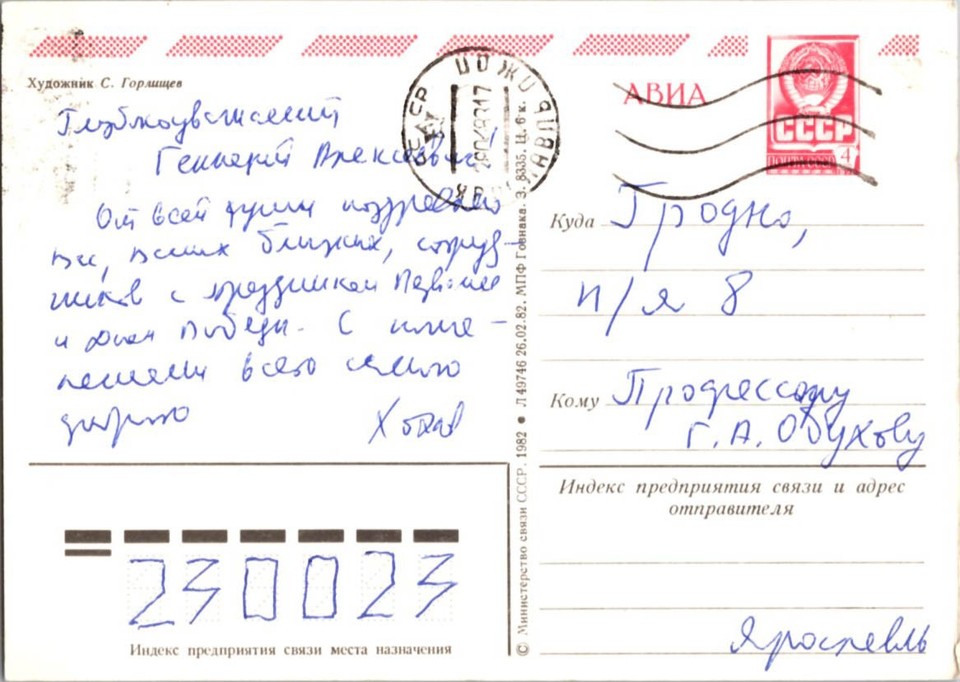 Художник С. Горлищев
Глубокоуважаемый
Геннадий Алексеевич!
От всей души поздравляю
Вас, Ваших близких, сотруд-
ников с праздником Первомая
и Днем Победы. С поже-
ланиями всего самого
доброго
АВИА
СССР
ПОЧТА СССР
4
Куда Гродно,
п/я 8
Кому Профессору
Г. А. Обухову
Индекс предприятия связи и адрес
отправителя
Ярославль
230023
Индекс предприятия связи места назначения
© Министерство связи СССР. 1982 ● Л 49746 26.02.82. МПФ Гознака. З. 8335. Ц. 6 к.